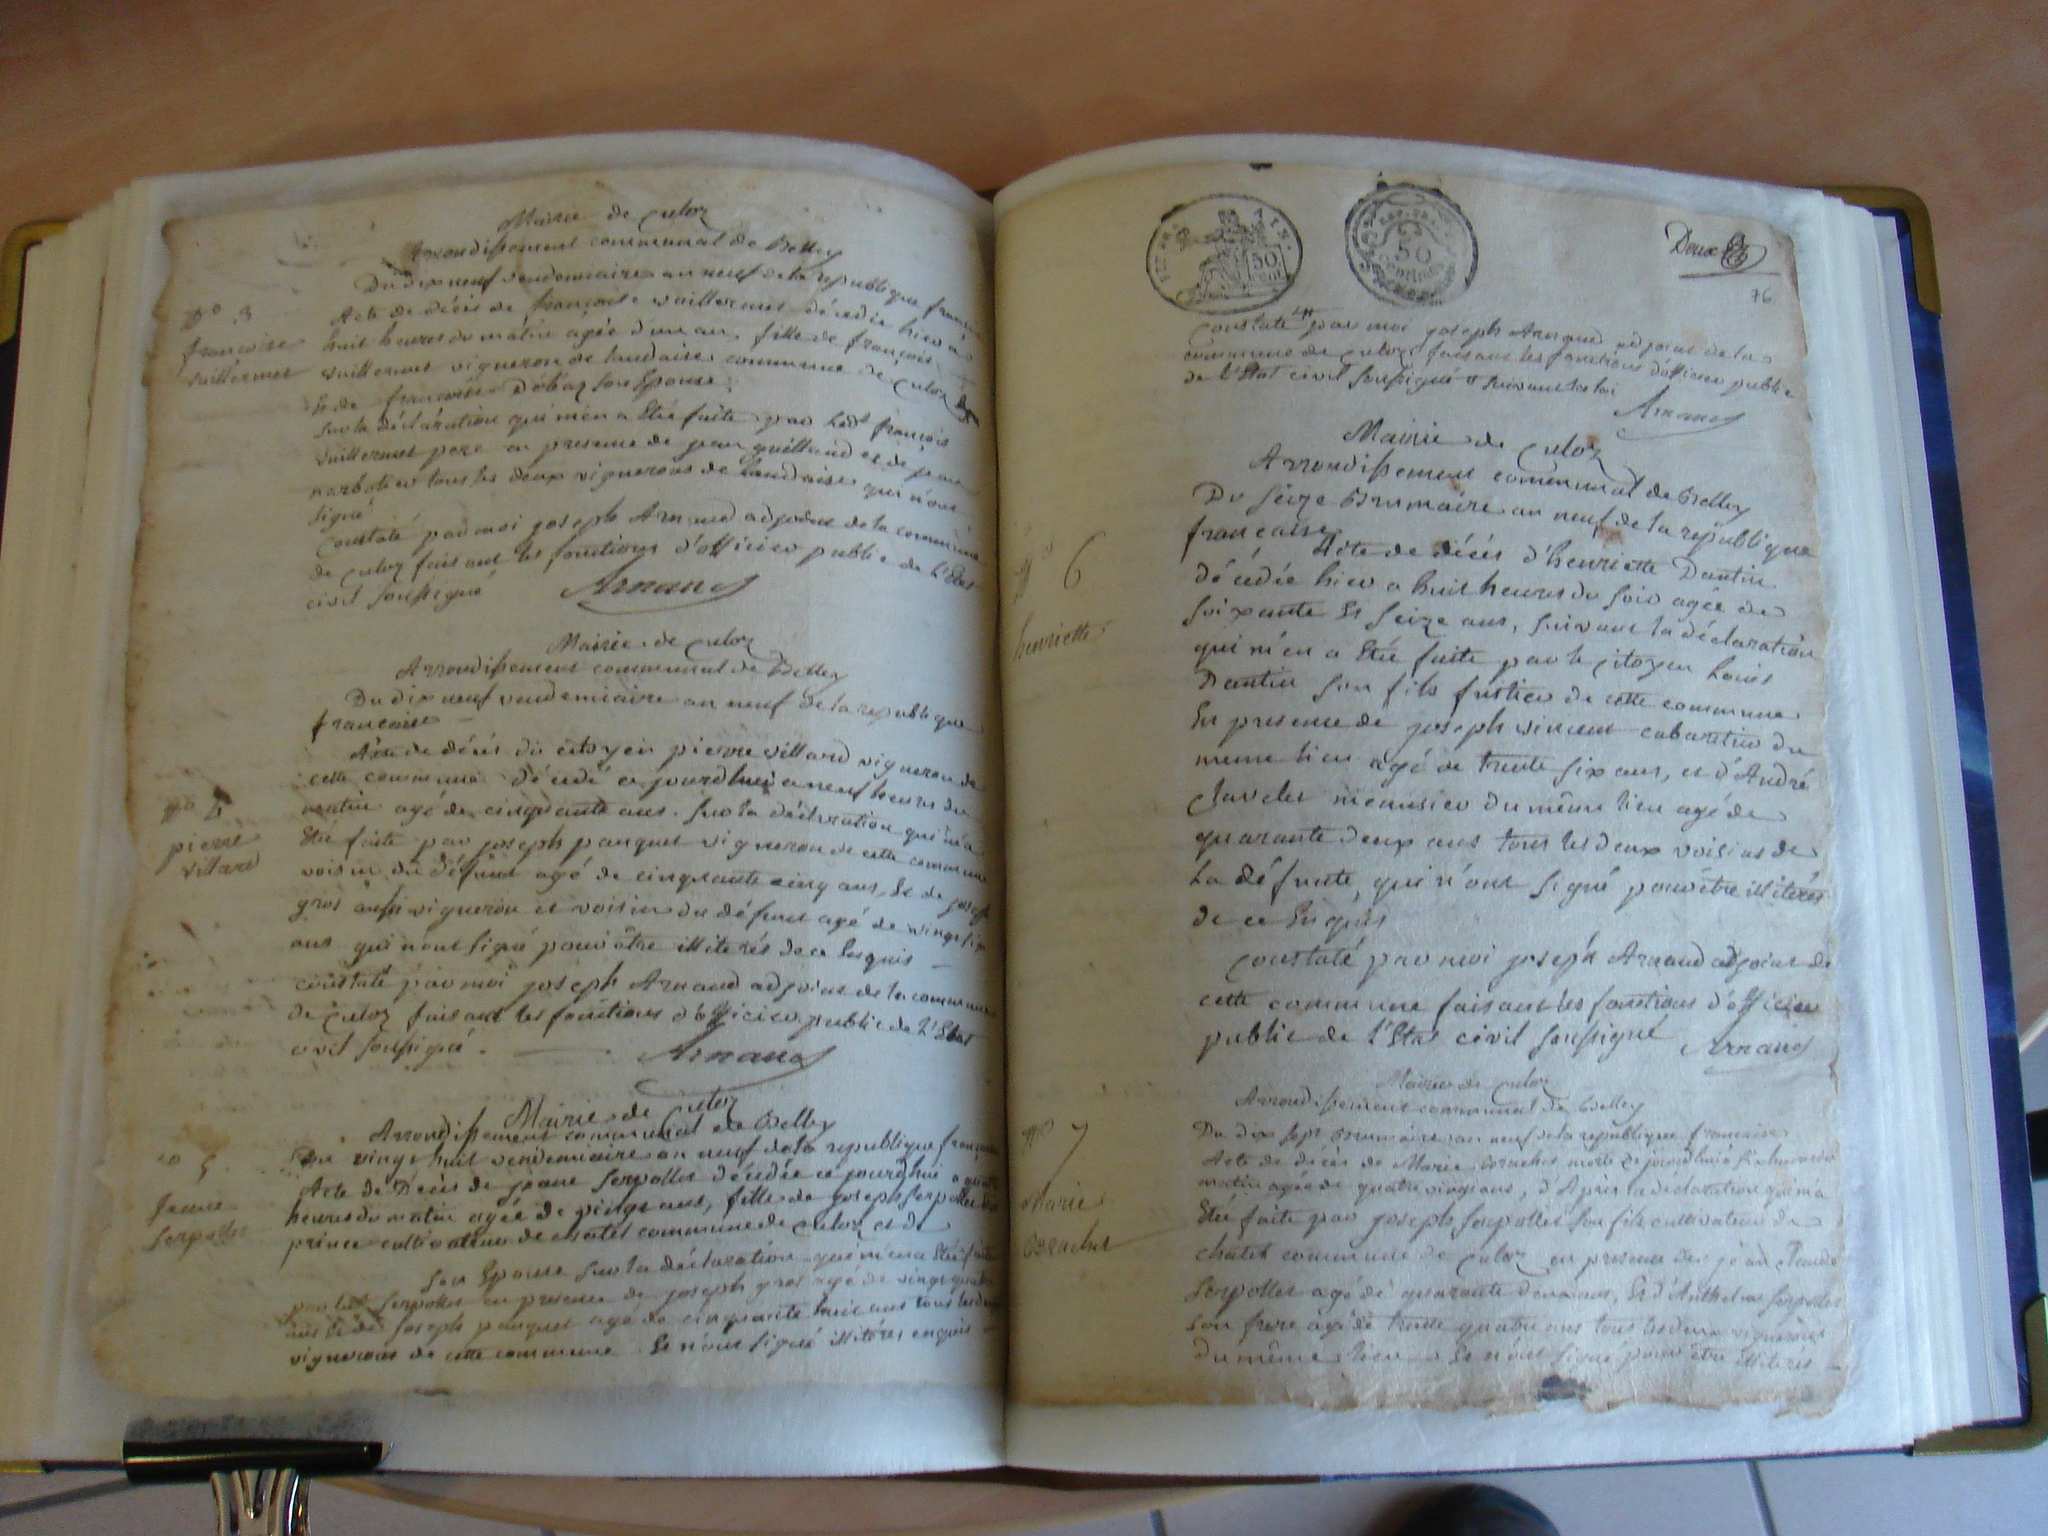 Mairie de Culoz
Arrondissement communal de Belley
Du dix neuf vendemiaire an neuf de la republique
N° 3
francoise
vuillermet
Acte de décés de françoise vuillermet décédée hier à
huit heures du matin agée d'un an, fille de françois
vuillermet vigneron de landaise commune de Culoz
Et de francoise son Epouse
sur la déclaration qui m'en a Etée faite par françois
vuillermet pere en presence de jean guilland et de jean
tous les deux vignerons de Landaise qui n'ont
signé
Constaté par moi joseph Arnaud adjoint de la commune
de Culoz faisant les fonctions d'officier public de l'Etat
civil soussigné Arnaud
Mairie de Culoz
Arrondissement communal de Belley
Du dix neuf vendemiaire an neuf de la republique
francaise
N° 4
pierre
villard
Acte de décés du citoyen pierre villard vigneron de
cette commune décédé ce jourdhui a neuf heures du
matin agé de cinquante ans. Sur la déclaration qui m'a
Eté faite par joseph panquet vigneron de cette commune
voisin du défunt agé de cinquante cinq ans, Et de joseph
gros aussi vigneron et voisin du défunt agé de vingt six
ans qui n'ont signé pour être illiterés de ce Enquis
constaté par moi joseph Arnaud adjoint de la commune
de Culoz faisant les fonctions d'officier public de l'Etat
civil soussigné. Arnaud
Mairie de Culoz
Arrondissement communal de Belley
N° 5
Jeanne
Serpollet
Du vingt huit vendemiaire an neuf de la republique francaise
Acte de Decés de jeane Serpollet décédée ce jourdhui a
heures du matin agée de vingt ans, fille de joseph Serpollet
prince cultivateur de chatel commune de Culoz et de
son Epouse sur la déclaration qui m'en a Eté faite
par led Serpollet en presence de joseph gros agé de vingt
ans Et de joseph panquet agé de cinquante huit ans tous les deux
vignerons de cette commune Et n'ont signé illitérés enquis
50
REP. FRA.
50
Centimes
Deux
76
Constaté par moi joseph Arnaud adjoint de la
commune de Culoz faisant les fonctions d'officier public
de l'Etat civil soussigné suivant la loi
Arnaud
Mairie de Culoz
Arrondissement communal de Belley
Du seize Brumaire an neuf de la republique
francaise
N° 6
henriette
Acte de décés d'henriette Dantin
décédée hier a huit heures du soir agée de
soixante Et seize ans, suivant la déclaration
qui m'en a Etée faite par le citoyen Louis
Dantin son fils de cette commune
En presence de joseph vincent cabaretier du
meme lieu agé de trente six ans, et d'André
Javelet menuisier du même lieu agé de
quarante deux ans tous les deux voisins de
La défunte, qui n'ont signé pour être illiterés
de ce Enquis
Constaté par moi joseph Arnaud adjoint de
cette commune faisant les fonctions d'officier
public de l'Etat civil soussigné Arnaud
Mairie de Culoz
Arrondissement communal de Belley
N° 7
Marie
Du dix sept Brumaire an neuf de la republique francaise
Acte de décés de Marie morte ce jourdhui a six heures du
matin agée de quatre vingt ans, d'Après la déclaration qui m'a
Etée faite par joseph Serpollet son fils cultivateur de
chatel commune de Culoz en presence de jean Claude
Serpollet agé de quarante deux ans, Et d'Anthelme Serpollet
son frere agé de trente quatre ans tous les deux vignerons
du même lieu Et n'ont signé pour être illiterés